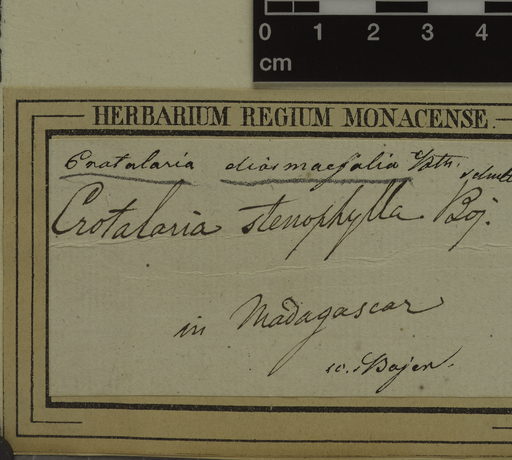 0 1 2 3 4
cm
HERBARIUM REGIUM MONACENSE.
Crotalaria diosmaefolia
Crotalaria stenophylla Boj.
in Madagascar
Bojer.